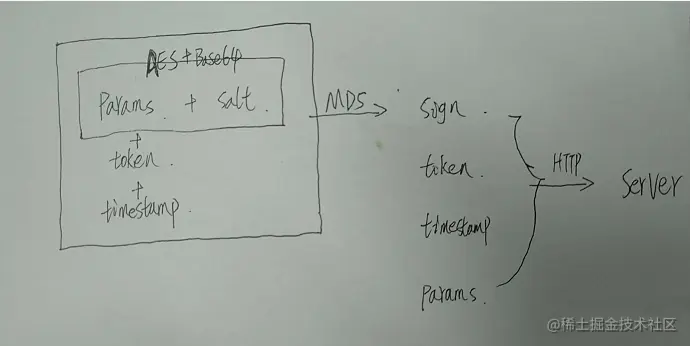 AES + Base64
Params + salt
+
token
+
timestamp
MD5
sign
token
timestamp
params
HTTP
Server
@稀土掘金技术社区